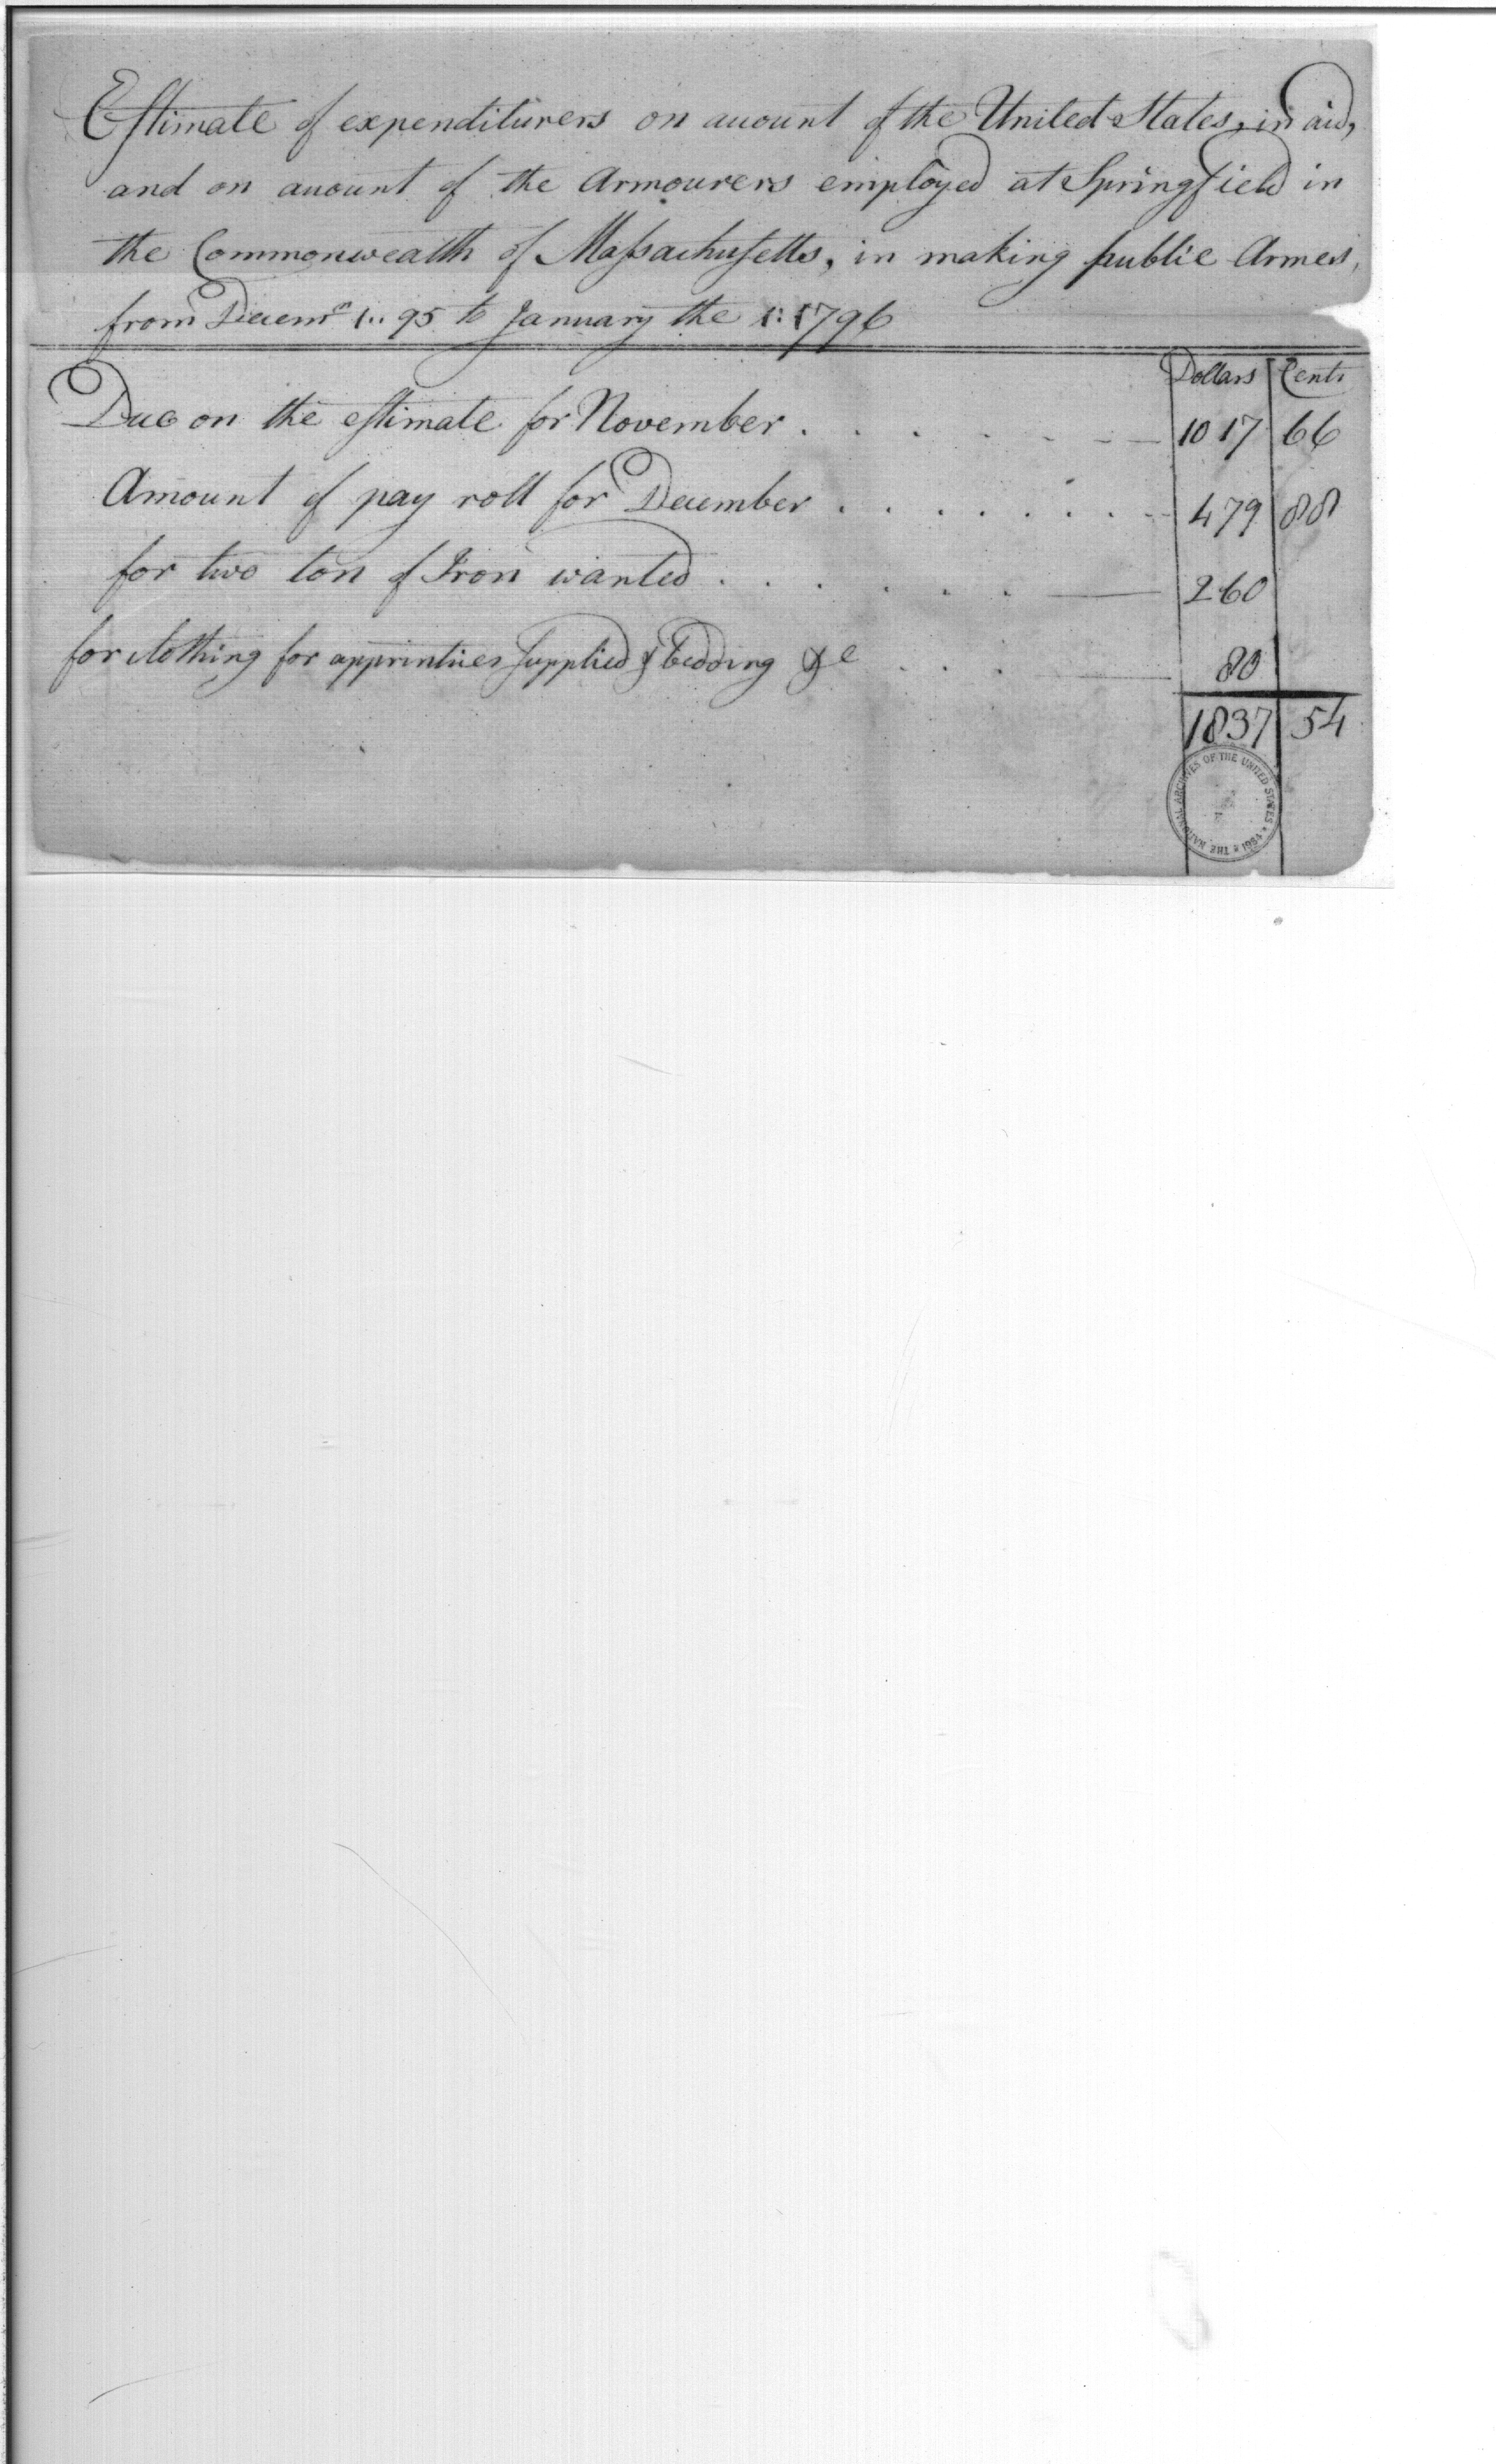 Estimate of expenditurers on account of the United States, in aid,
and on account of the Armourers employed at Springfield in
the Commonwealth of Massachusetts, in making public Armes,
from Decemr 1.. 95 to January the 1: 1796
Dollars Cents
Due on the estimate for November . . . . . . 1017 66
Amount of pay roll for December . . . . . . . . 479 88
for two ton of Iron wanted . . . . . . . 260
for clothing for apprintices supplied & bedding &c . . . 80
1837 54
THE NATIONAL ARCHIVES OF THE UNITED STATES * 1934 *